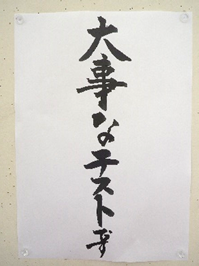 大事なテストす